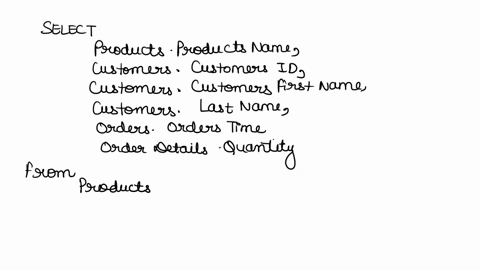 SELECT
Products. Products Name,
Customers. Customers ID,
Customers. Customers First Name
Customers. Last Name,
Orders. Orders Time
Order Details .Quantity
From
Products